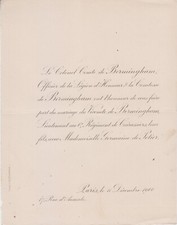 Le Colonel Comte de Bermingham,
Officier de la Légion d'Honneur & la Comtesse
de Bermingham ont l'honneur de vous faire
part du mariage du Vicomte de Bermingham,
Lieutenant au Régiment de Cuirassiers, leur
fils, avec Mademoiselle Germaine de
Paris, le Décembre
Rue